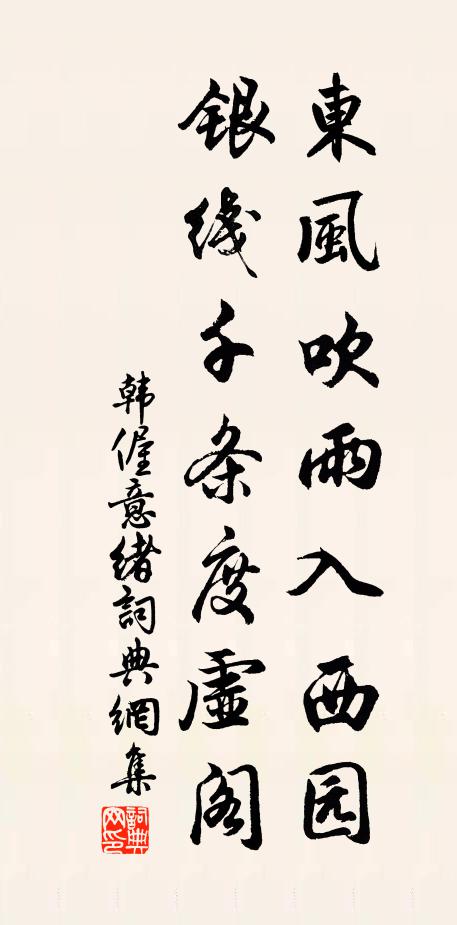 東風吹雨入西园
銀线千条度虚阁
韩偓意绪詞典網集
詞典网印